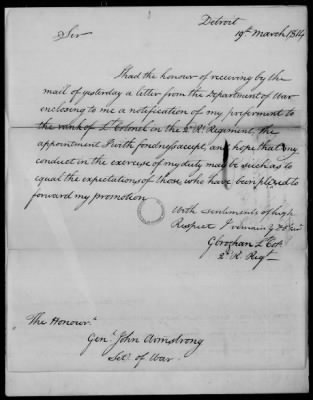 Detroit
19th March 1814
Sir
I had the honour of receiving by the
mail of yesterday a letter from the Department of War
enclosing to me a notification of my preferment to
the rank of Lt Colonel in the 2d R. Regiment, the
appointment I with fondness accept, and hope that my
conduct in the exercise of my duty may be such as to
equal the expectations of those who have been pleased to
forward my promotion
With sentiments of high
Respect I remain
G Croghan Lt Col
2d R Regt
The Honourl
Genl John Armstrong
Secy of War